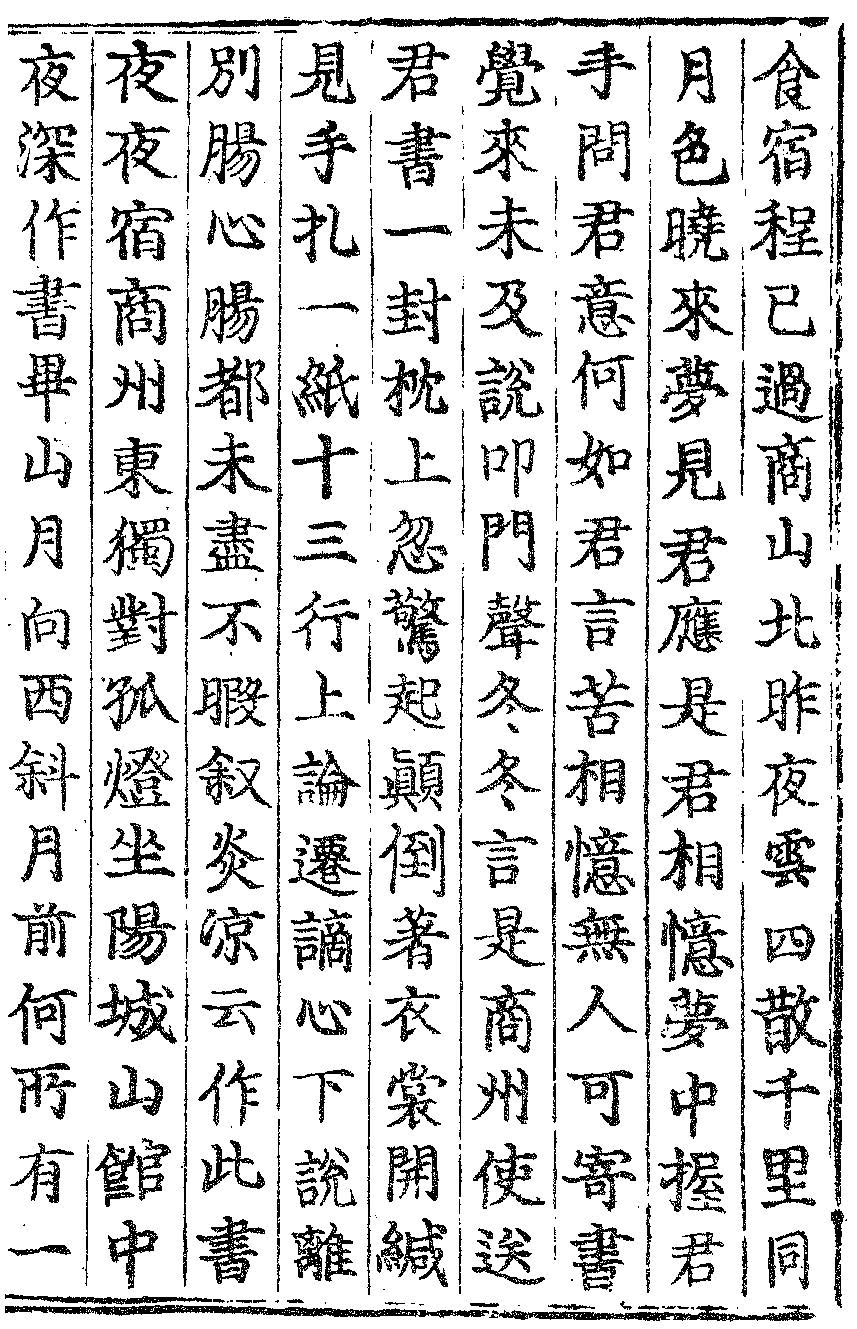 食宿程已過商山北昨夜雲四散千里同
月色曉來夢見君應是君相憶夢中握君
手問君意何如君言苦相憶無人可寄書
覺來未及說叩門聲冬冬言是商州使送
君書一封枕上忽驚起顚倒著衣裳開緘
見手扎一紙十三行上論遷謫心下說離
別腸心腸都未盡不暇叙炎凉云作此書
夜夜宿商州東獨對孤燈坐陽城山館中
夜深作書畢山月向西斜月前何所有一